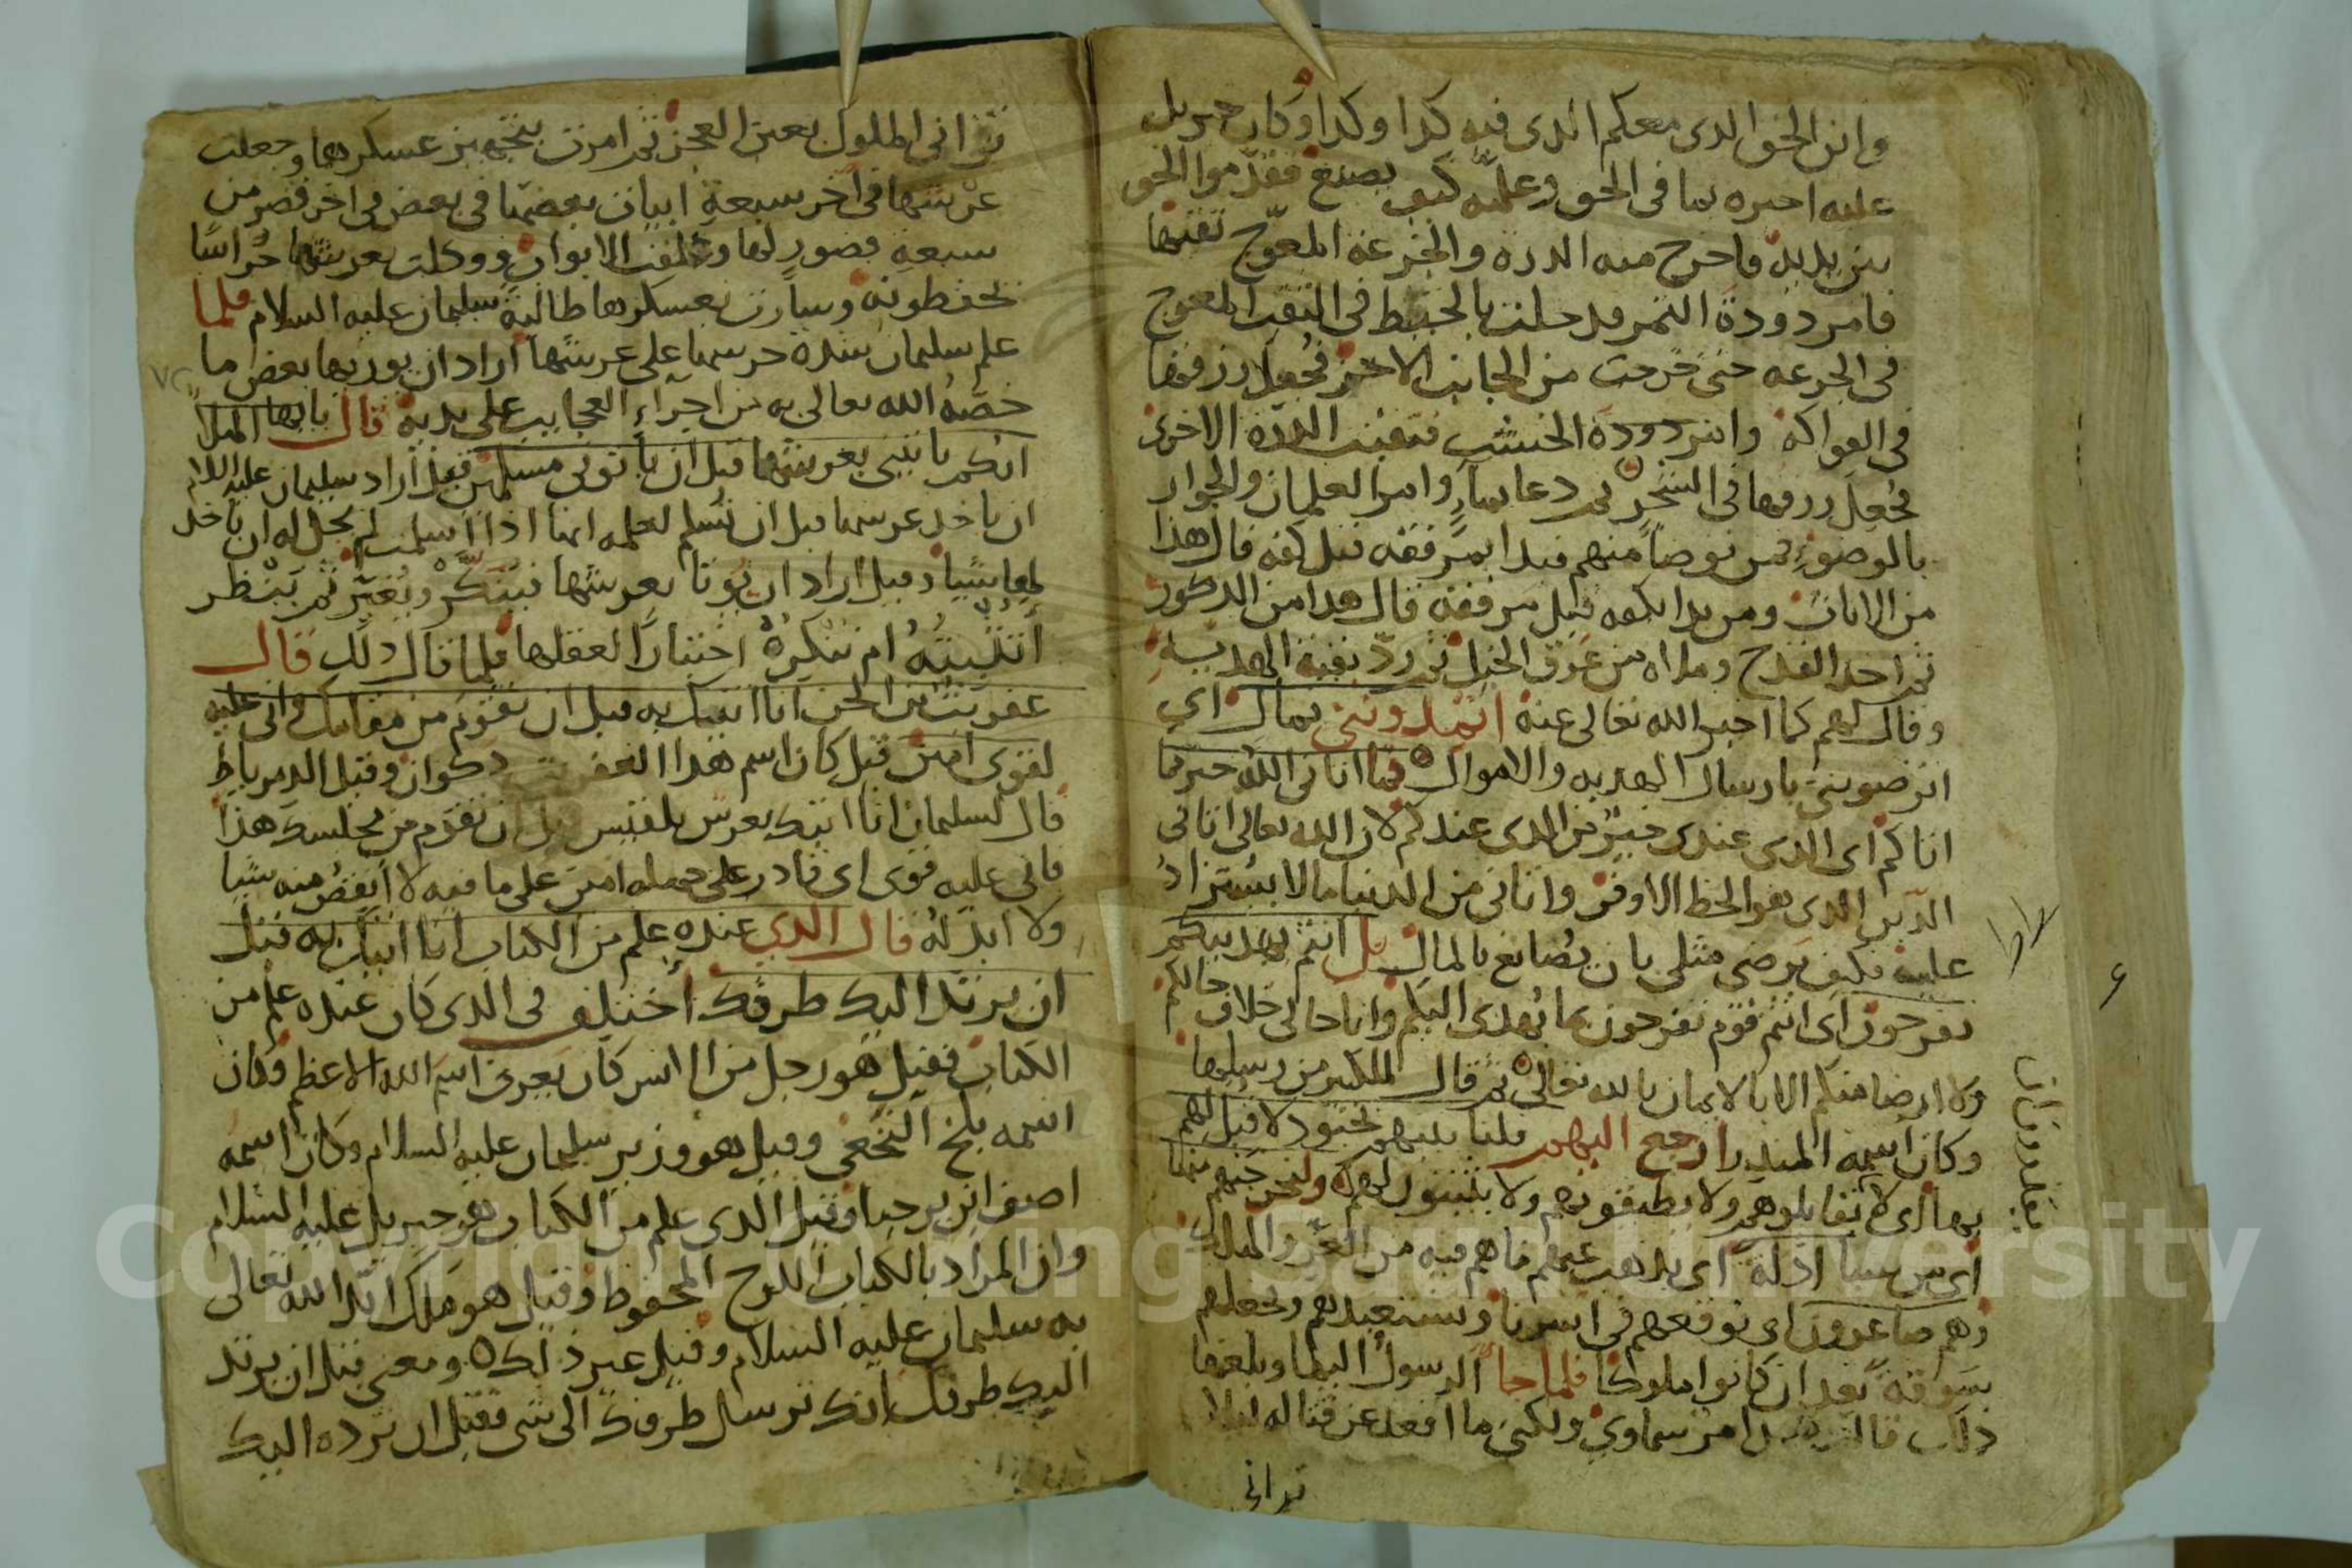 واين الحق الذي معكم الذي فيه كذا وكذا وكان جبريل
عليه اخبره بما في الحق وعلمه كيف يصنع فقدموا الحق
بين يديه فاخرج منه الدرة والجزعة المعوج ثقبها
فامر دودة التمر فدخلت بالخيط في الثقب المعوج
في الجزعه حتى خرجت من الجانب الاخر فجعل رزقها
في الفواكه وامر دودة الخشب فثقبت الدرة الاخرى
فجعل رزقها في الشجر ثم دعا بماء وامر الغلمان والجوار
بالوضوء فمن توضأ منهم فبدا بمرفقه قبل كفه قال هذا
من الاناث ومن بدا بكفه قبل مرفقه قال هذا من الذكور
ثم اخذ القدح وملاه من عرق الخيل ثم ردّ بقية الهدية
وقال لهم كما اخبر الله تعالى عنه اتمدونني بمال اي
اترضونني بارسال الهديه والاموال فما اتاني الله خير مما
اتاكم اي الذي عندي خير من الذي عندكم لان الله تعالى اتاني
الدين الذي هو الحظ الاوفر واتاني من الدنيا ما لا يستزاد
عليه فكيف يرضى مثلي بان يصانع بالمال بل انتم بهديتكم
تفرحون اي انتم قوم تفرحون بما يهدى اليكم وانا حالي خلاف حالكم
ولا ارضا منكم الا بالايمان بالله تعالى ثم قال للكبير من رسلها
وكان اسمه المنذر ارجع اليهم فلنأتينهم بجنود لا قبل لهم
بها اي لا تقابلوهم ولا يطيقونهم ولا يثبتون لهم ولنخرجنهم منها
اي من سبا اذلة اي يذهب عنهم ما هم فيه من العز والملك
وهم صاغرون اي نوقعهم في اسرنا ونستعبدهم ونجعلهم
سوقة بعد ان كانوا ملوكا فلما جا الرسول اليها وبلغها
ذلك قالت هذا امر سماوي ولكني ما اقعد عن قتاله ليلا
تراني
تراني الملوك بعين العجز ثم امرت بتجهيز عسكرها وجعلت
عرشها في اخر سبعة ابيات بعضها في بعض في اخر قصر من
سبعه قصور لها وغلقت الابواب ووكلت بعرشها حراسا
يحفظونه وسارت بعسكرها طالبة سليمان عليه السلام فلما
علم سليمان شدة حرسها على عرشها اراد ان يوريها بعض ما
خصه الله تعالى به من اجراء العجايب على يديه قال يا ايها الملأ
ايكم يأتيني بعرشها قبل ان يأتوني مسلمين فقيل اراد سليمان عليه السلام
ان ياخذ عرشها قبل ان تسلم لعلمه انها اذا اسلمت لم يحل له ان ياخذ
لها شيا وقيل اراد ان يوتا بعرشها فينكر ويغير ثم ينظر
أتثبته ام تنكره اختبارا لعقلها فلما قال ذلك قال
عفريت من الجن انا اتيك به قبل ان تقوم من مقامك واني عليه
لقوي امين قيل كان اسم هذا العفريت ذكوان وقيل الدمرياط
قال لسليمان انا اتيك بعرش بلقيس قبل ان تقوم من مجلسك هذا
فاني عليه قوي اي قادر على حمله امين على ما فيه لا انقص منه شيا
ولا ابدله قال الذي عنده علم من الكتاب انا اتيك به قبل
ان يرتد اليك طرفك اختلف في الذي كان عنده علم من
الكتاب فقيل هو رجل من الانس كان يعرف اسم الله الاعظم وكان
اسمه بلخ النخعي وقيل هو وزير سليمان عليه السلام وكان اسمه
اصف ابن برخيا وقيل الذي علم من الكتاب هو جبريل عليه السلام
وان المراد بالكتاب اللوح المحفوظ وقيل هو ملك ايد الله تعالى
به سليمان عليه السلام وقيل غير ذلك ومعنى قبل ان يرتد
اليك طرفك انك ترسل طرفك الى شى فقبل ان ترده اليك
Copyright © King Saud University